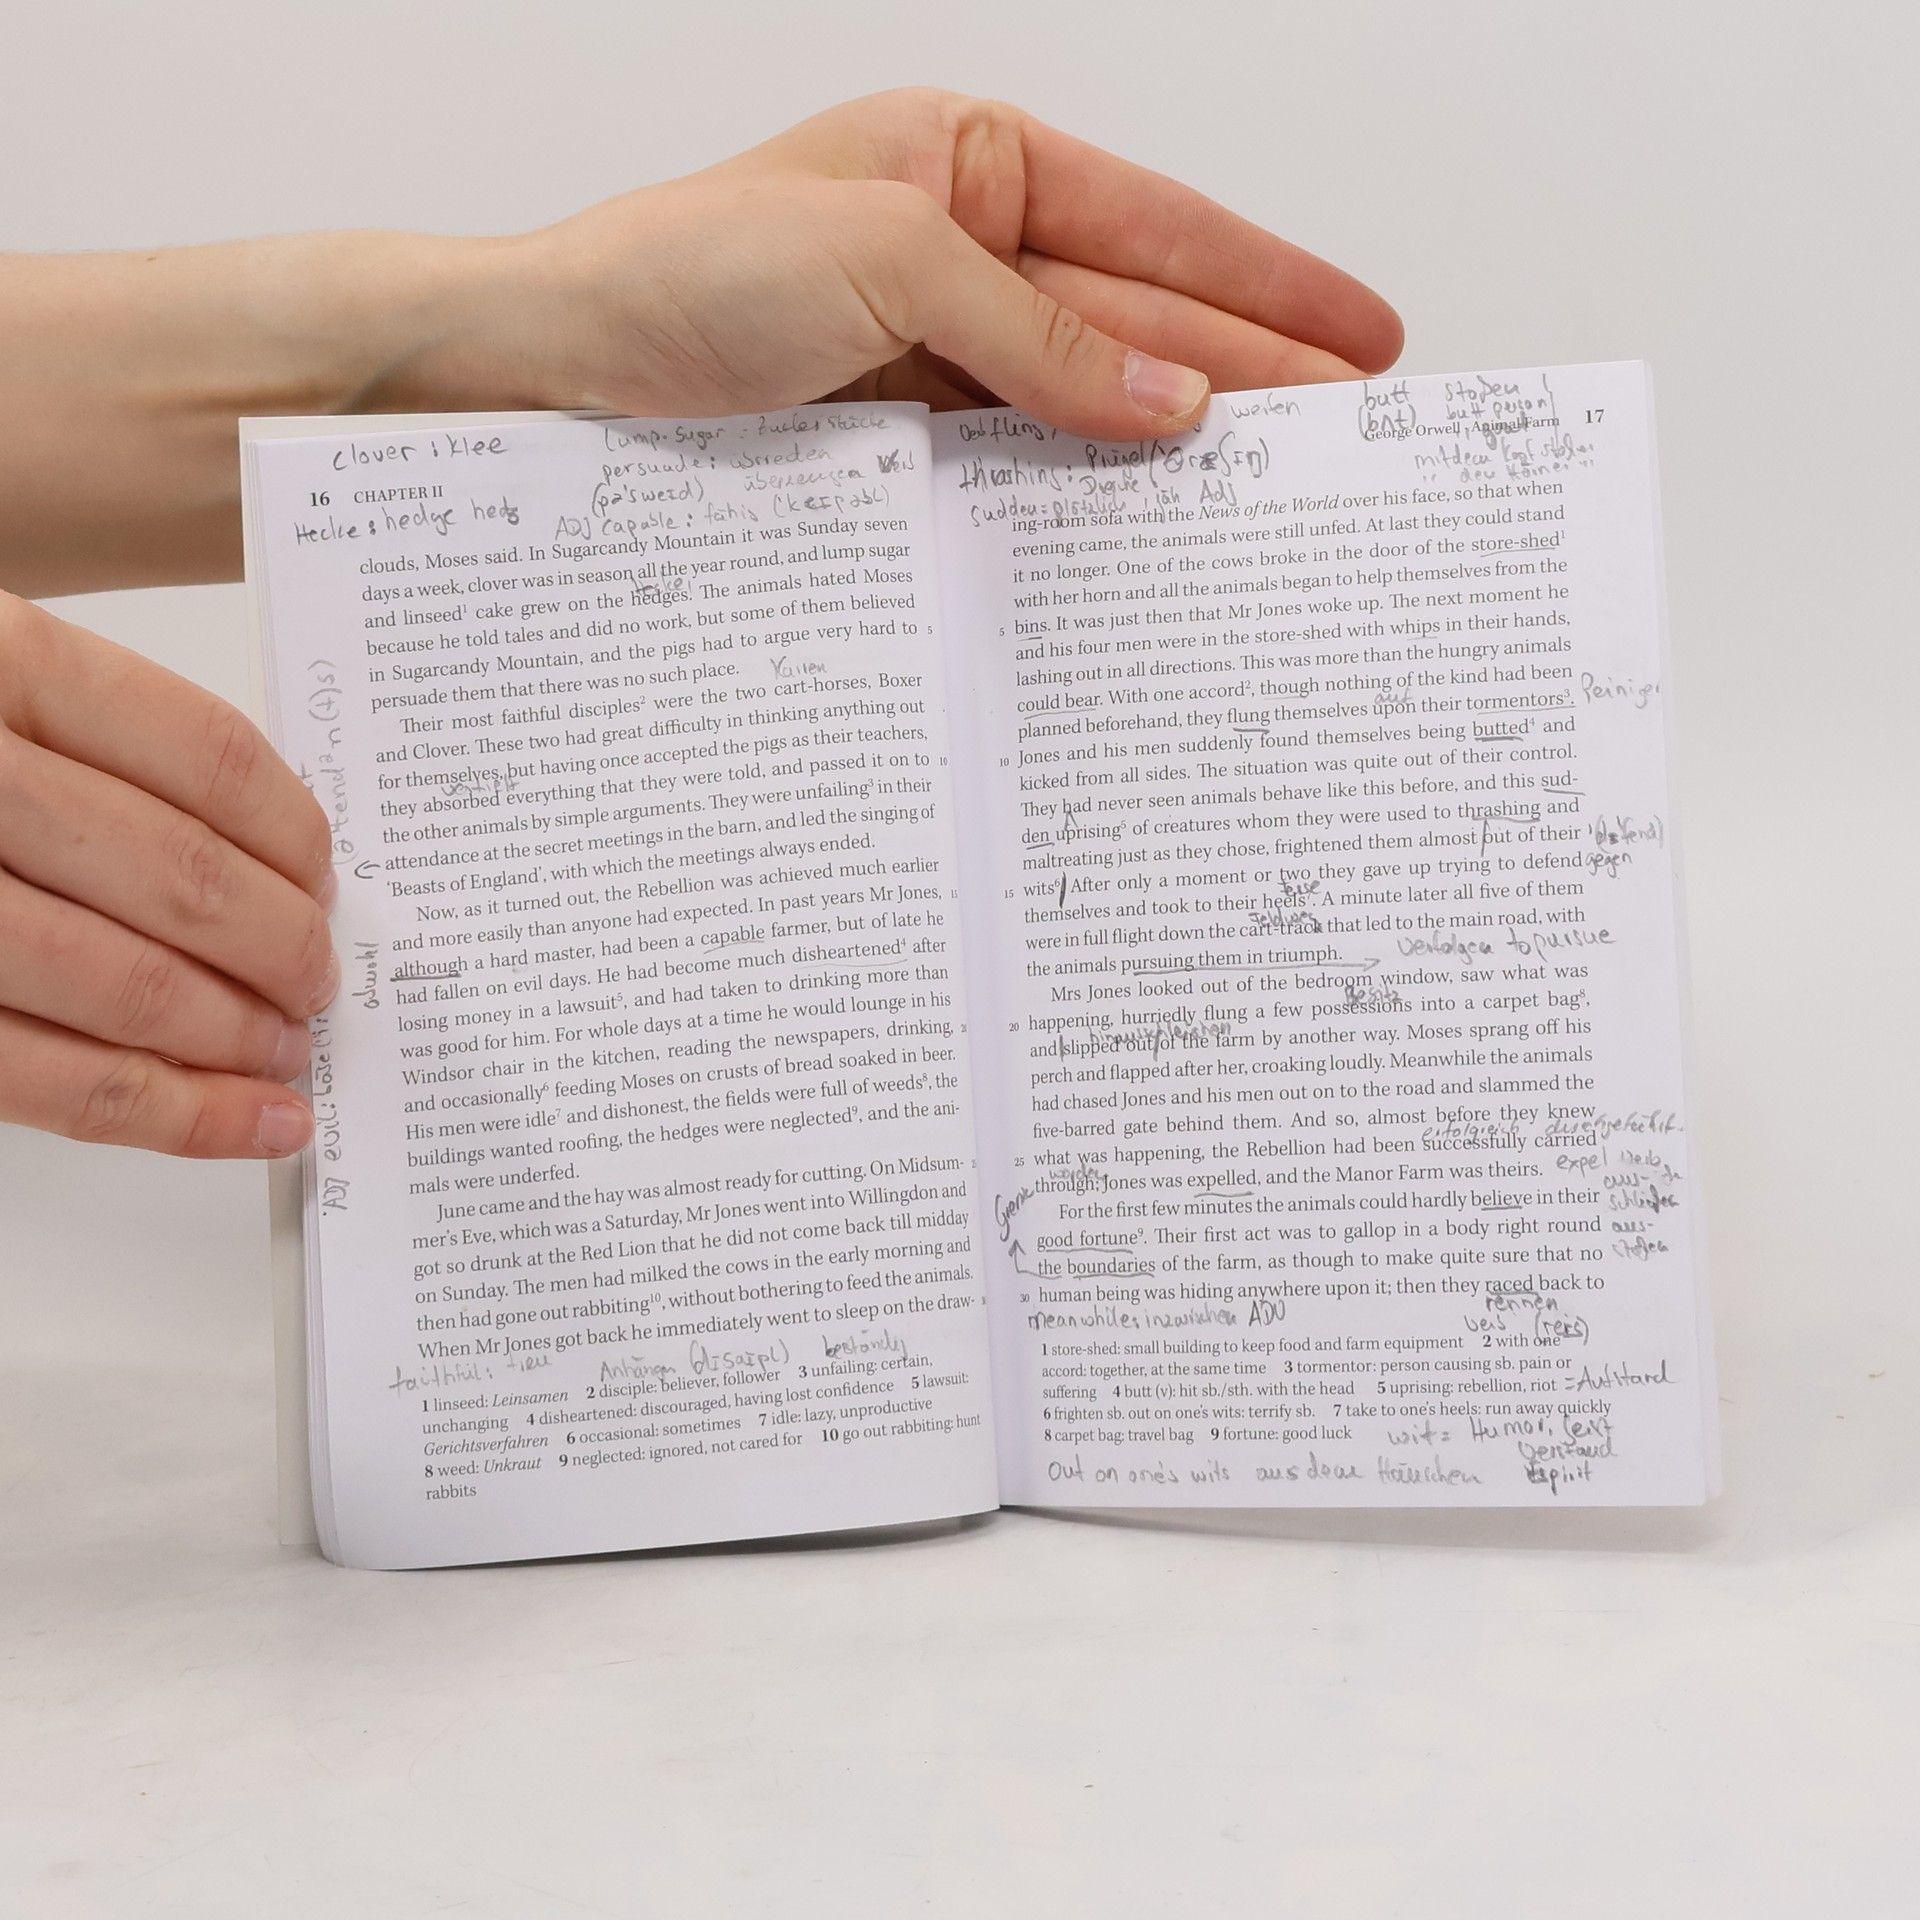 clover : Klee
lump-sugar : Zuckerstücke
persuade : überreden
überzeugen
16 CHAPTER II
Hecke : hedge
ADJ capable : fähig
clouds, Moses said. In Sugarcandy Mountain it was Sunday seven
days a week, clover was in season all the year round, and lump sugar
Hecke
and linseed¹ cake grew on the hedges. The animals hated Moses
because he told tales and did no work, but some of them believed
in Sugarcandy Mountain, and the pigs had to argue very hard to 5
persuade them that there was no such place.
Karren
Their most faithful disciples² were the two cart-horses, Boxer
and Clover. These two had great difficulty in thinking anything out
for themselves, but having once accepted the pigs as their teachers,
they absorbed everything that they were told, and passed it on to 10
the other animals by simple arguments. They were unfailing³ in their
attendance at the secret meetings in the barn, and led the singing of
‘Beasts of England’, with which the meetings always ended.
Now, as it turned out, the Rebellion was achieved much earlier
and more easily than anyone had expected. In past years Mr Jones, 15
although a hard master, had been a capable farmer, but of late he
had fallen on evil days. He had become much disheartened⁴ after
losing money in a lawsuit⁵, and had taken to drinking more than
was good for him. For whole days at a time he would lounge in his
Windsor chair in the kitchen, reading the newspapers, drinking,
and occasionally⁶ feeding Moses on crusts of bread soaked in beer.
His men were idle⁷ and dishonest, the fields were full of weeds⁸, the
buildings wanted roofing, the hedges were neglected⁹, and the ani-
mals were underfed.
June came and the hay was almost ready for cutting. On Midsum-
mer’s Eve, which was a Saturday, Mr Jones went into Willingdon and
got so drunk at the Red Lion that he did not come back till midday
on Sunday. The men had milked the cows in the early morning and
then had gone out rabbiting¹⁰, without bothering to feed the animals.
When Mr Jones got back he immediately went to sleep on the draw-
faithful : treu
Anhänger
beständig
1 linseed: Leinsamen 2 disciple: believer, follower 3 unfailing: certain,
unchanging 4 disheartened: discouraged, having lost confidence 5 lawsuit:
Gerichtsverfahren 6 occasional: sometimes 7 idle: lazy, unproductive
8 weed: Unkraut 9 neglected: ignored, not cared for 10 go out rabbiting: hunt
rabbits
ADJ evil : böse
werfen
butt stoßen
George Orwell · Animal Farm 17
thrashing : Prügel
sudden = plötzlich, jäh Adj
ing-room sofa with the News of the World over his face, so that when
evening came, the animals were still unfed. At last they could stand
it no longer. One of the cows broke in the door of the store-shed¹
with her horn and all the animals began to help themselves from the
5 bins. It was just then that Mr Jones woke up. The next moment he
and his four men were in the store-shed with whips in their hands,
lashing out in all directions. This was more than the hungry animals
could bear. With one accord², though nothing of the kind had been
auf
planned beforehand, they flung themselves upon their tormentors³. Peiniger
10 Jones and his men suddenly found themselves being butted⁴ and
kicked from all sides. The situation was quite out of their control.
They had never seen animals behave like this before, and this sud-
den uprising⁵ of creatures whom they were used to thrashing and
maltreating just as they chose, frightened them almost out of their
15 wits⁶! After only a moment or two they gave up trying to defend gegen
Ferse
themselves and took to their heels⁷. A minute later all five of them
Feldweg
were in full flight down the cart-track that led to the main road, with
the animals pursuing them in triumph. verfolgen to pursue
Mrs Jones looked out of the bedroom window, saw what was
Besitz
20 happening, hurriedly flung a few possessions into a carpet bag⁸,
hinausschleichen
and slipped out of the farm by another way. Moses sprang off his
perch and flapped after her, croaking loudly. Meanwhile the animals
had chased Jones and his men out on to the road and slammed the
five-barred gate behind them. And so, almost before they knew
erfolgreich durchgeführt
25 what was happening, the Rebellion had been successfully carried
worden
through: Jones was expelled, and the Manor Farm was theirs. expel
For the first few minutes the animals could hardly believe in their
good fortune⁹. Their first act was to gallop in a body right round
Grenze
the boundaries of the farm, as though to make quite sure that no
30 human being was hiding anywhere upon it; then they raced back to
meanwhile : inzwischen ADV
rennen
1 store-shed: small building to keep food and farm equipment 2 with one
accord: together, at the same time 3 tormentor: person causing sb. pain or
suffering 4 butt (v): hit sb./sth. with the head 5 uprising: rebellion, riot = Aufstand
6 frighten sb. out on one’s wits: terrify sb. 7 take to one’s heels: run away quickly
8 carpet bag: travel bag 9 fortune: good luck
wit = Humor, Geist
Verstand
Out on one's wits aus dem Häuschen